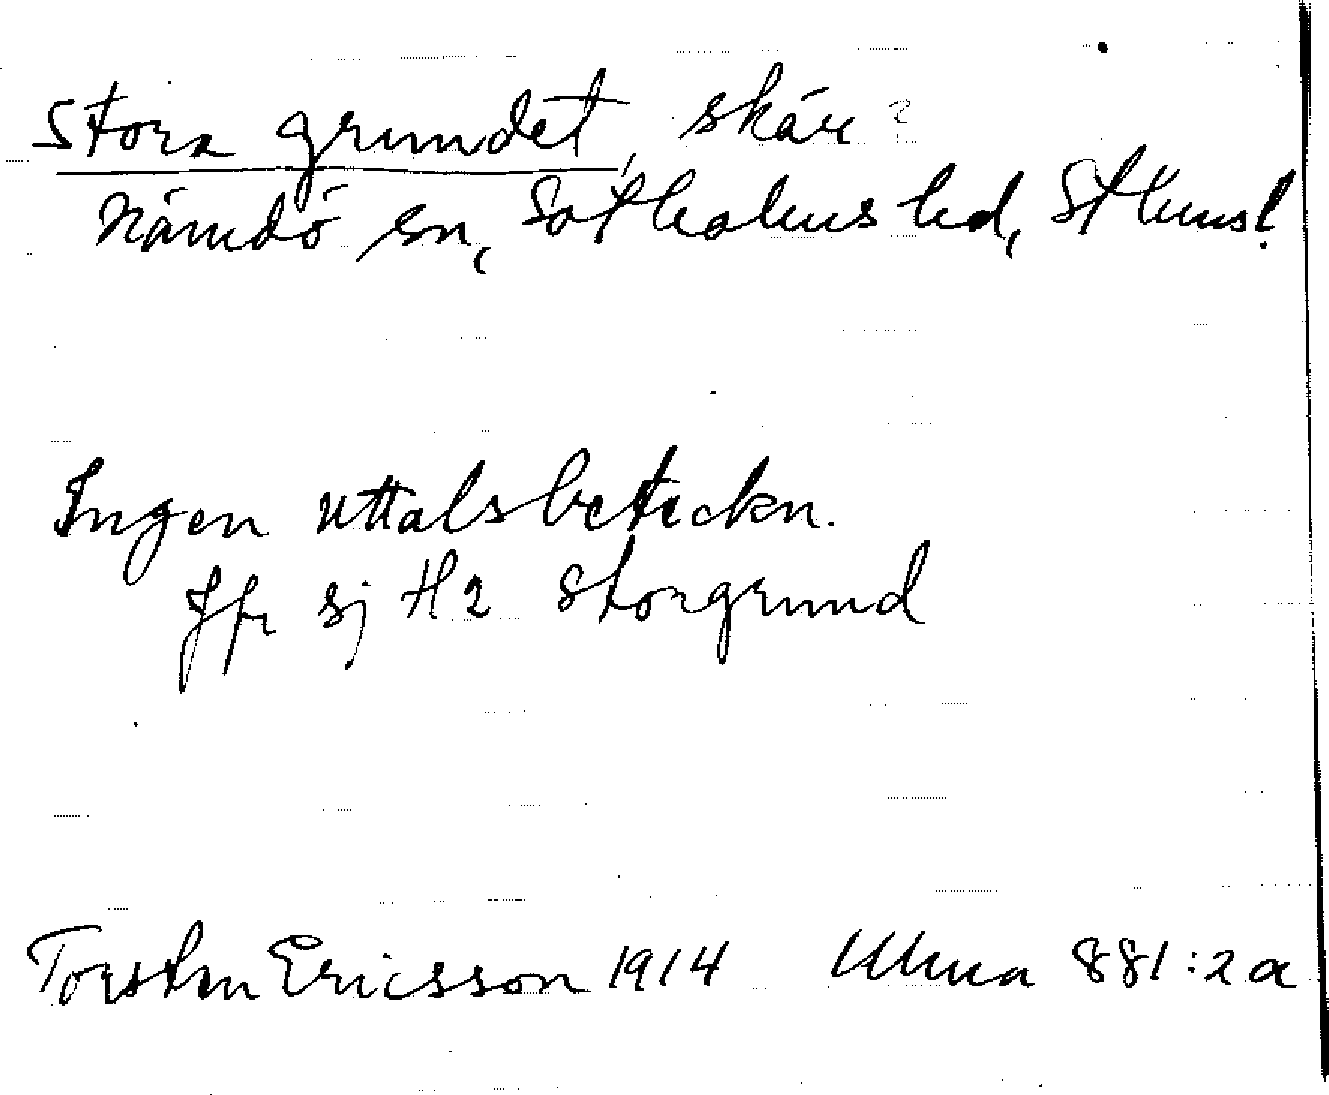 Stora grundet, skär ?
Nämdö sn, Sotholms hd, Sthms l.
Ingen uttalsbeteckn.
Jfr sj H2 Storgrund
Torsten Ericsson 1914 Ulma 881:2a